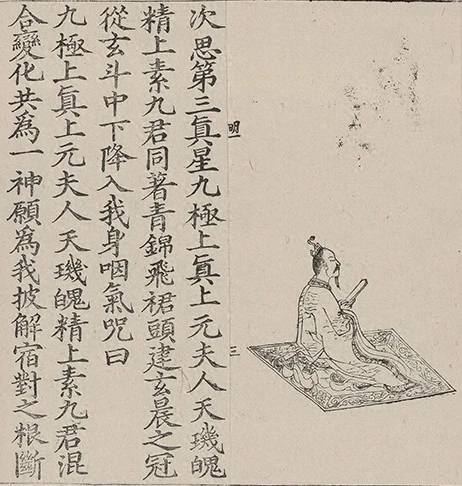 次思第三真星九極上真上元夫人天璣魄
精上素九君同著青錦飛裙頭建玄晨之冠
從玄斗中下降入我身咽氣呪曰
九極上真上元夫人天璣魄精上素九君混
合變化共為一神願為我披解宿對之根斷
明一
三